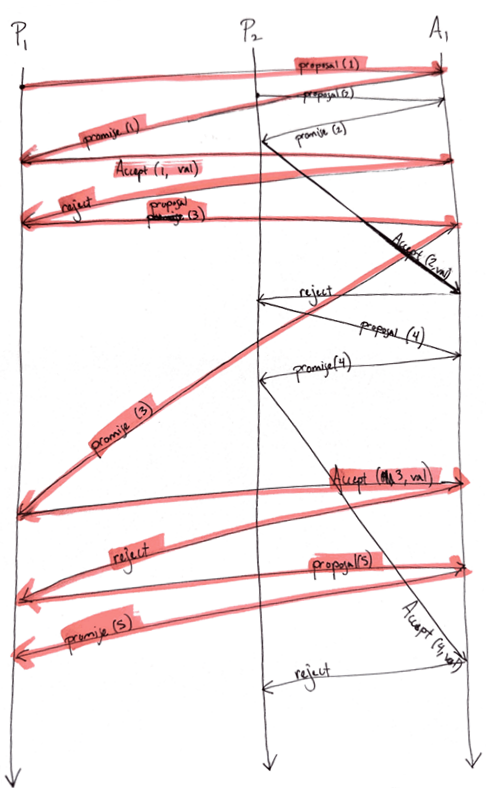 P1
P2
A1
proposal (1)
proposal (2)
promise (1)
promise (2)
Accept (1, val)
reject
proposal
(3)
Accept (2, val)
reject
proposal (4)
promise (4)
promise (3)
Accept (3, val)
reject
proposal (5)
Accept (4, val)
promise (5)
reject